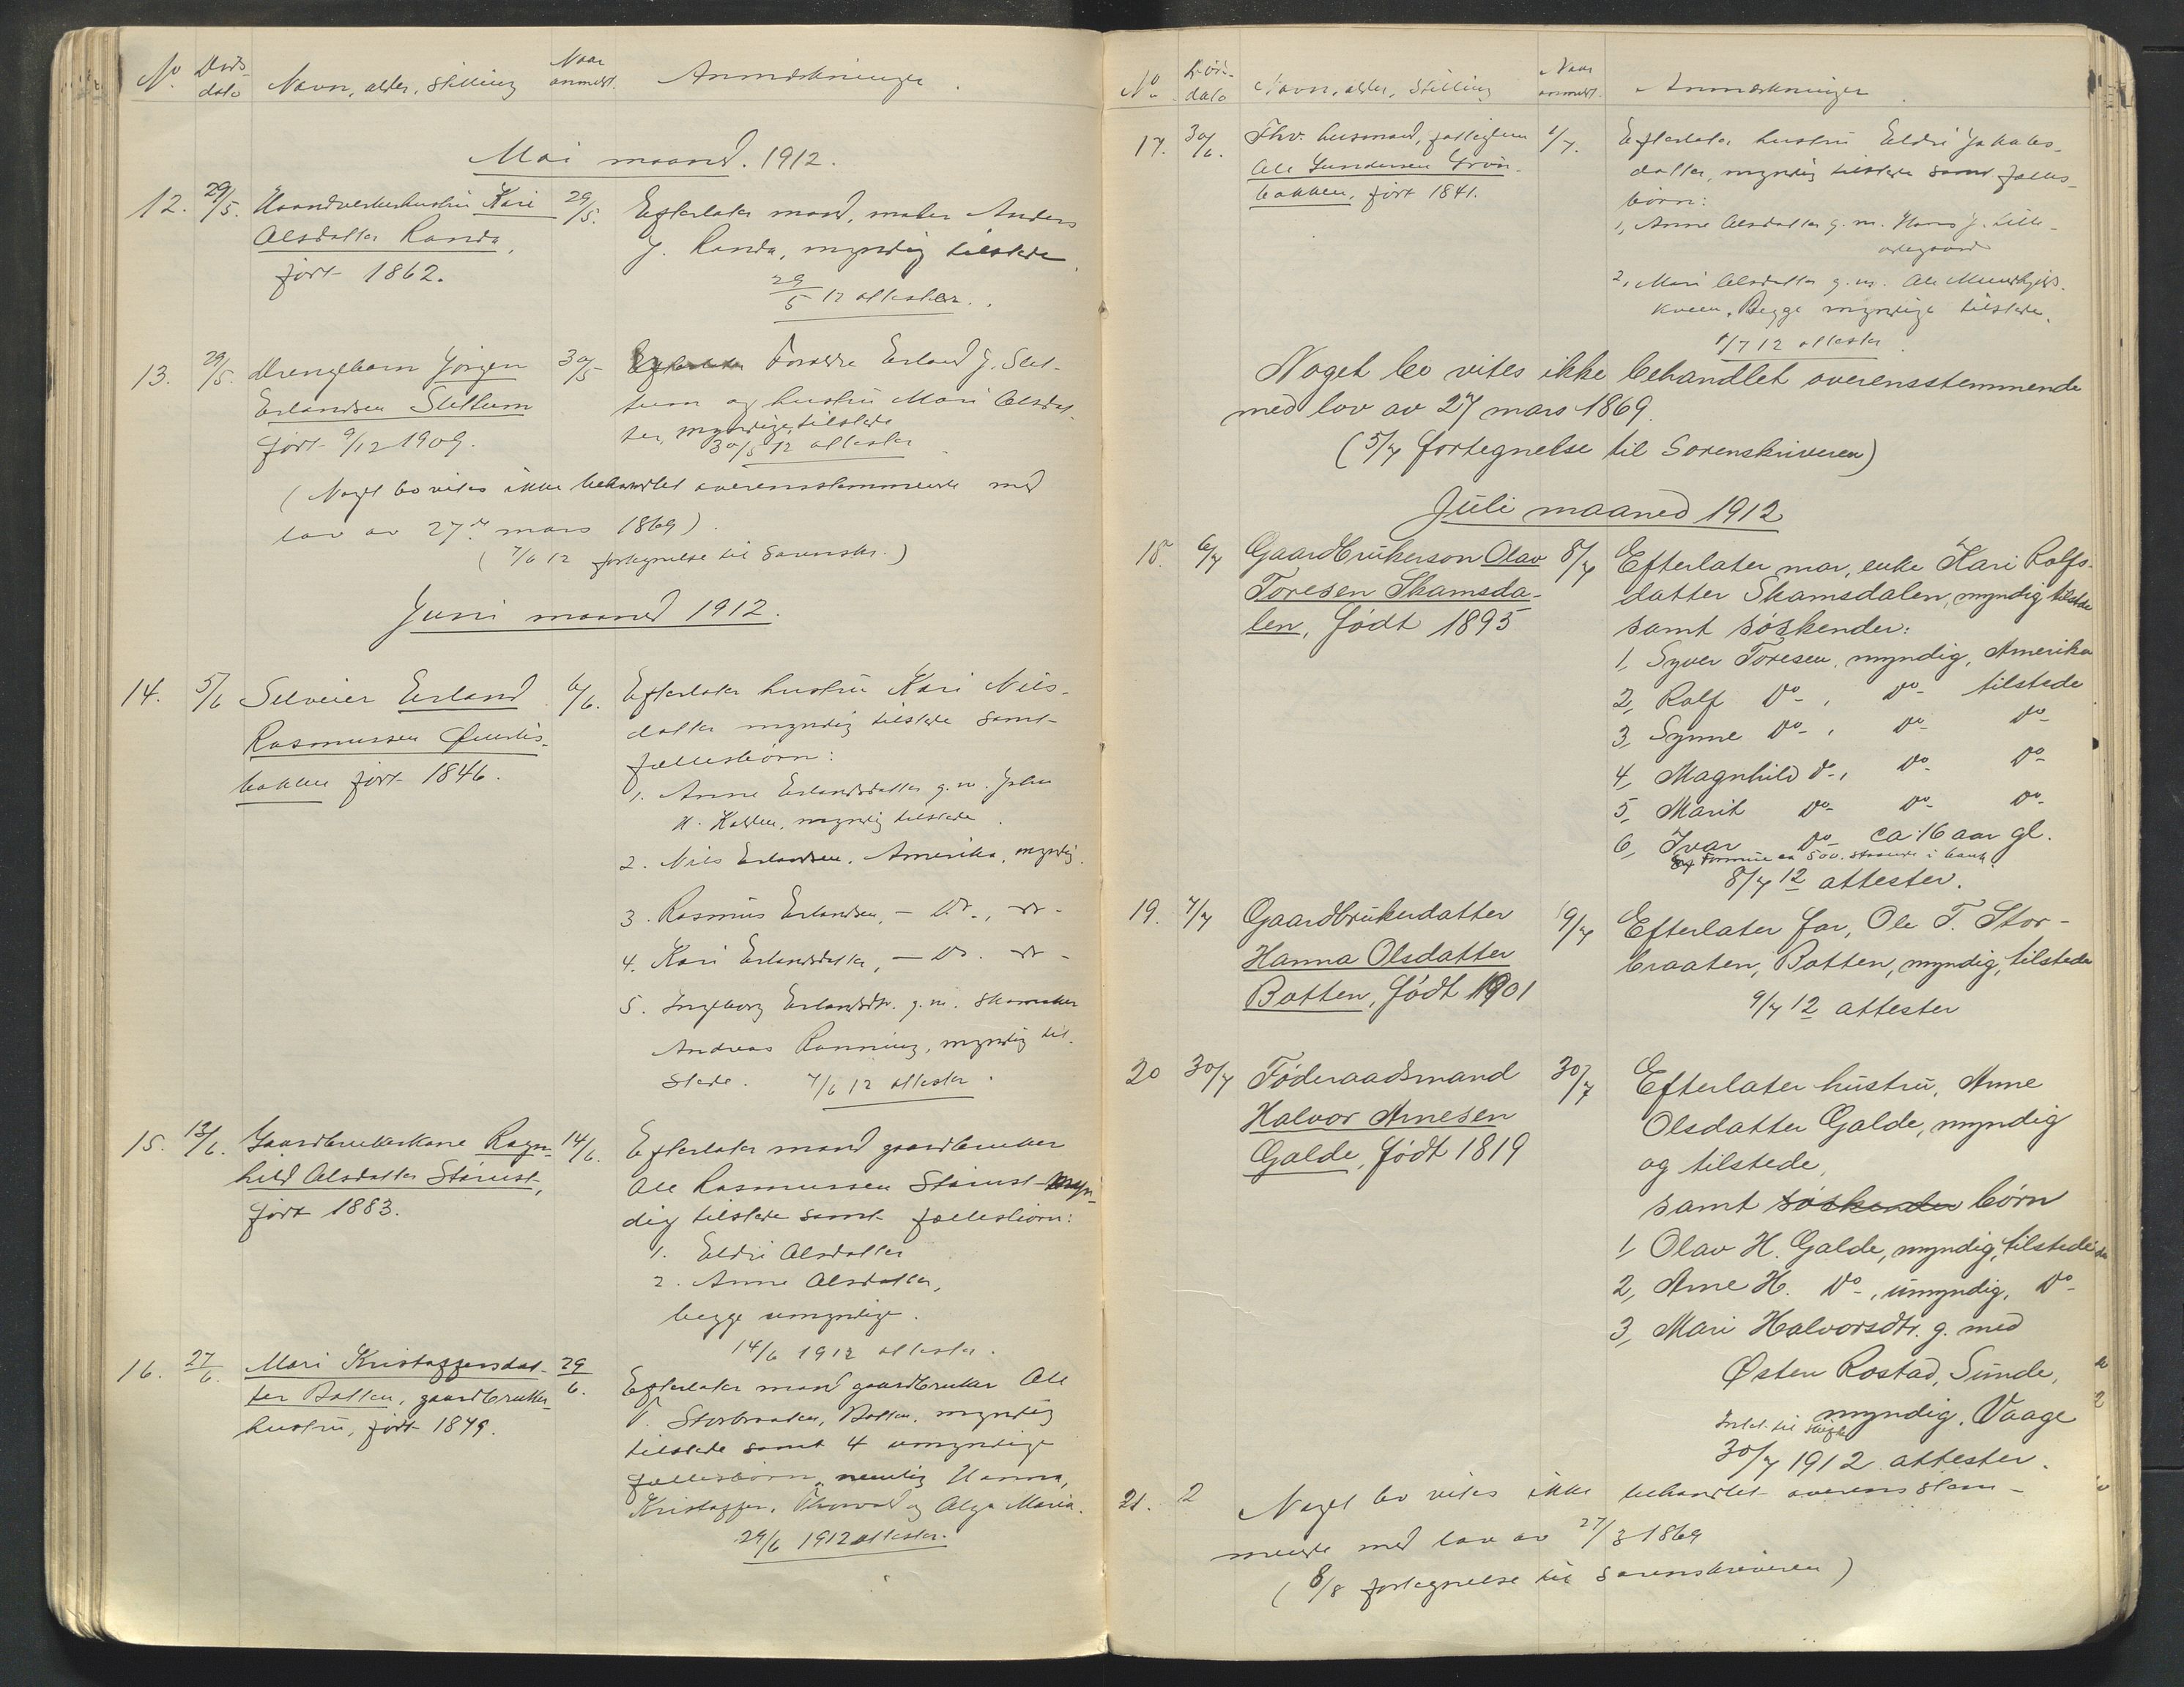 No Døds- dato Navn, alder, stilling Naar anmeldt. Anmerkninger.
Mai maaned. 1912.
12. 29/5. Haandverkerhustru Kari 29/5. Efterlater mand, maler Anders
Olsdatter Randa, J. Randa, myndig tilstede.
født 1862. 29/5 12 attester.
13. 29/5. Drengebarn Jörgen 30/5 Efterlater Forældre Erland J. Slet-
Erlandsen Slettum tum og hustru Mari Olsdat-
født 9/12 1909. ter, myndige, tilstede
30/5 12 attester
(Noget bo vites ikke behandlet overensstemmende med
lov av 27de mars 1869).
(7/6 12 fortegnelse til Sorenskr.)
Juni maaned 1912.
14. 5/6 Selveier Erland 6/6. Efterlater hustru Kari Nils-
Rasmussen datter myndig tilstede samt
bakken født 1846. fællesbörn:
1. Anne Erlandsdatter g.m. John
H. Kolden, myndig tilstede.
2. Nils Erlandsen, Amerika, myndig.
3. Rasmus Erlandsen, – Do., do –
4. Kari Erlandsdatter, – Do. do –
5. Ingeborg Erlandsdtr. g.m. Skomaker
Andreas Ranning, myndig til-
stede. 7/6 12 attester.
15. 13/6. Gaardbrukerkone Ragn- 14/6. Efterlater mand gaardbruker
hild Olsdatter Stamst, Ole Rasmussen Stamst myn-
født 1883. dig tilstede samt fællesbörn:
1. Eldri Olsdatter
2. Anne Olsdatter,
begge umyndige.
14/6 1912 attester.
16. 27/6. Mari Kristoffersdat- 29/6. Efterlater mand gaardbruker Ole
ter Botten, gaardbruker- T. Storbraaten, Botten, myndig
hustru, født 1879. tilstede samt 4 umyndige
fællesbörn, nemlig Hanna,
Kristoffer, Thorvald og Olga Maria.
29/6 1912 attester.
No Död- dato Navn, alder, stilling Naar anmeldt. Anmerkninger.
17. 30/6. Fhv. husmand, fattiglem 1/7. Efterlater hustru Eldri Jakobs-
Ole Gundersen Grön- datter, myndig tilstede samt fælles-
bakken, født 1841. börn:
1, Anne Olsdatter g.m. Hans J. Lille-
ødegaard
2, Mari Olsdatter g.m. Ole
kveen. Begge myndige tilstede.
1/7 12 attester
Noget bo vites ikke behandlet overensstemmende
med lov av 27 mars 1869.
(5/7 fortegnelse til Sorenskriveren)
Juli maaned 1912
18. 6/7 Gaardbrukerson Olav 8/7 Efterlater mor, enke Kari Rolfs-
Toresen Skamsda- datter Skamsdalen, myndig tilstede
len, födt 1895 samt söskender:
1, Syver Toresen, myndig, Amerika
2, Rolf Do-, Do- tilstede
3, Synne Do-, Do- Do-
4, Magnhild Do-, Do- Do-
5, Marit Do- Do- Do-
6, Ivar Do- ca: 16 aar gl.
Formue ca 500. staaende i bank.
8/7 12 attester.
19. 7/7 Gaardbrukerdatter 9/7 Efterlater far, Ole T. Stor-
Hanna Olsdatter braaten, Botten, myndig, tilstede
Botten, födt 1901 9/7 12 attester
20 30/7 Föderaadsmand 30/7 Efterlater hustru, Anne
Halvor Arnesen Olsdatter Galde, myndig
Galde, födt 1819 og tilstede,
samt söskender börn
1, Olav H. Galde, myndig, tilstede
2, Arne H. Do-, umyndig, Do-
3, Mari Halvorsdtr. g. med
Østen Rostad, Sunde,
myndig. Vaage
Intet til skifte
30/7 1912 attester.
21. 2 Noget bo vites ikke behandlet overensstem-
mende med lov av 27/3 1869
(8/8 fortegnelse til Sorenskriveren)